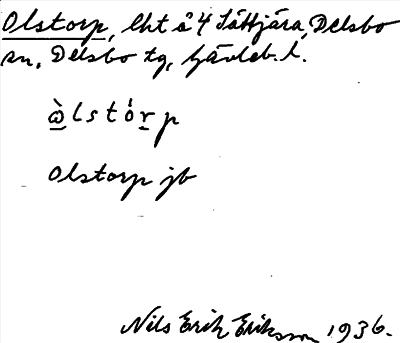 Olstorp, lht å 4 Sättjära, Delsbo
sn, Delsbo tg, Gävleb. l.
ὼlstórp
Olstorp jb
Nils Erik Eriksson 1936.